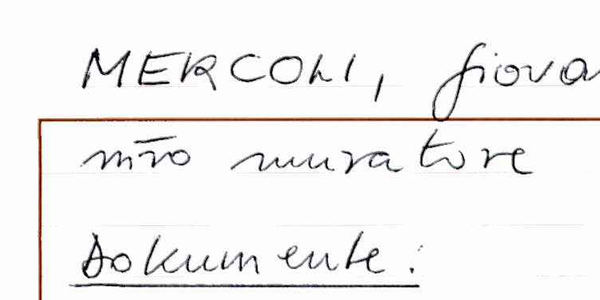 MERCOLI, Giova
mro muratore
Dokumente: